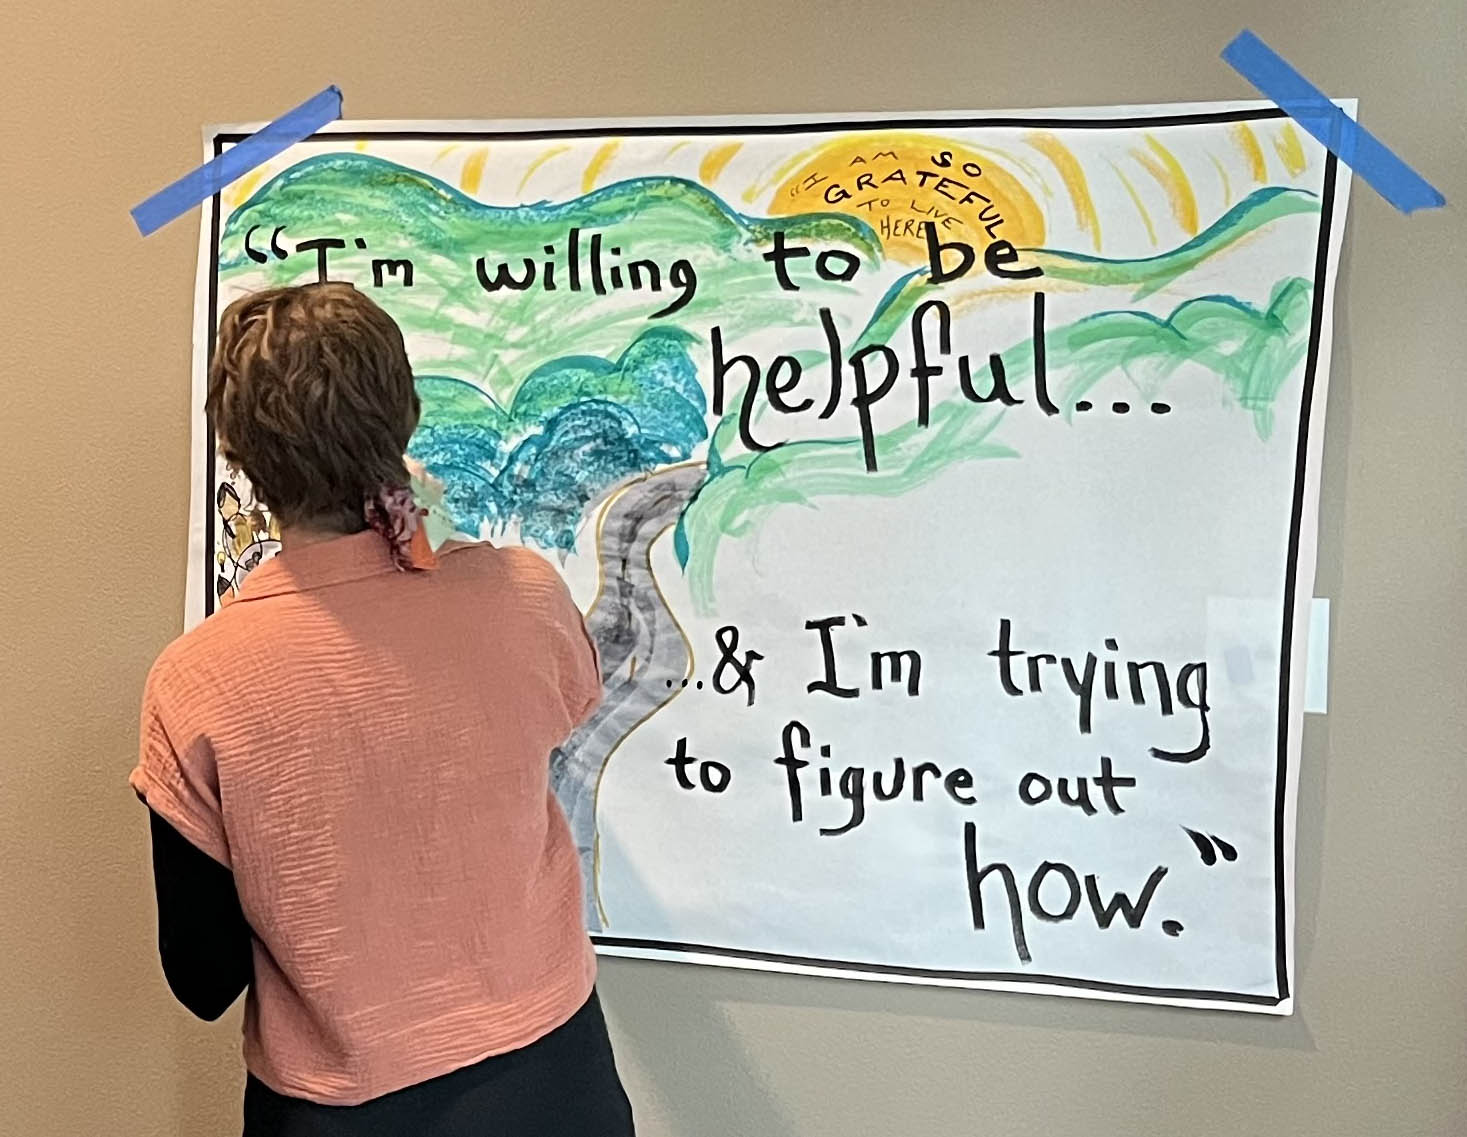 "I AM SO
GRATEFUL
TO LIVE
HERE
"I'm willing to be
helpful...
...& I'm trying
to figure out
how."